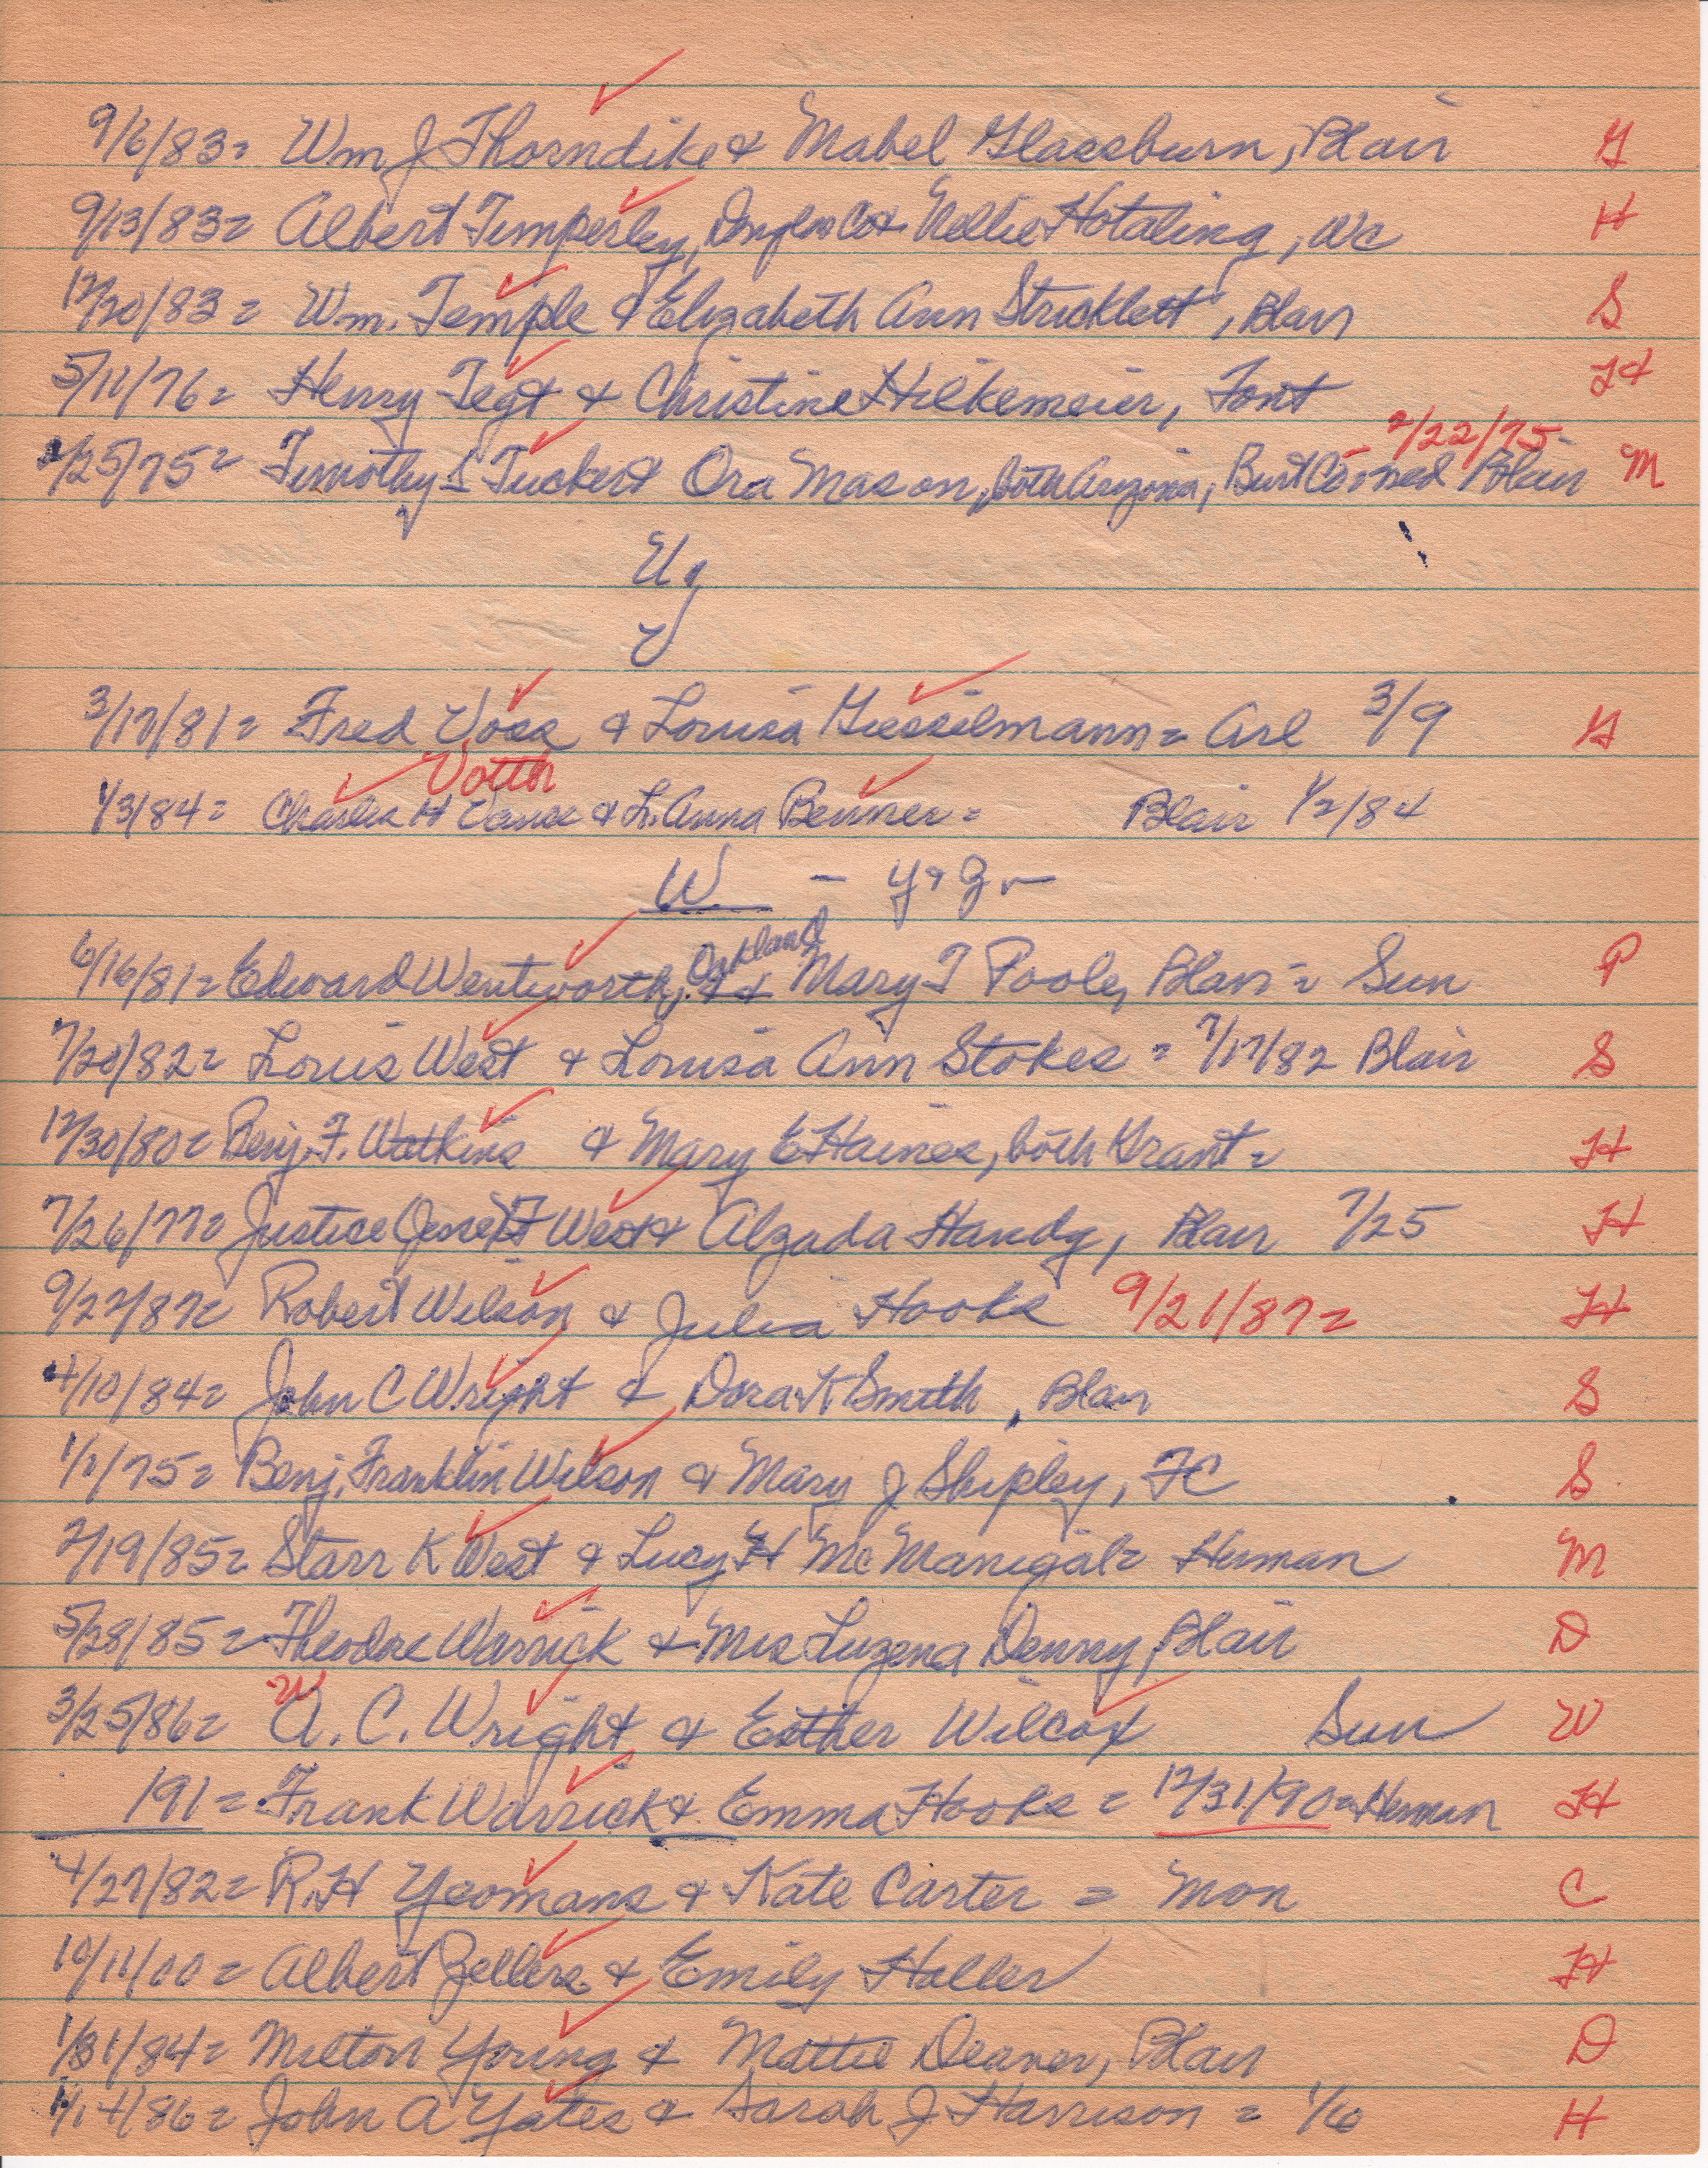 9/6/83= Wm J Thorndike & Mabel Glassburn, Blair G
9/13/83= Albert Timperley, Douglas Co & Nellie Hotaling, WC H
12/20/83= Wm. Temple & Elizabeth Ann Stricklett, Blair S
5/11/76= Henry Tegt & Christine Hilkemeier, Font H
2/22/75
/25/75= Timothy S Tucker & Ora Mason, both Arizona, Burt Co = med Blair M
U
V
3/17/81= Fred Voss & Louisa Giesselmann = Arl 3/9 G
Votth
1/3/84= Charles H Vance & L. Anna Benner = Blair 1/2/84
W - Y & Z -
Oakland
6/16/81= Edward Wentworth, & Mary T Poole, Blair = Sun P
7/20/82= Louis West & Louisa Ann Stokes = 7/17/82 Blair S
12/30/80= Benj. F. Watkins & Mary E Haines, both Grant = H
7/26/77= Justice Jesse T West & Alzada Handy, Blair 7/25 H
9/22/87= Robert Wilson & Julia Hooks 9/21/87= H
4/10/84= John C Wright & Dora K Smith, Blair S
1/1/75= Benj. Franklin Wilson & Mary J Shipley, FC S
2/19/85= Starr K West & Lucy H McManigal = Herman M
5/28/85= Theodore Warrick & Mrs Luzena Denny, Blair D
W
3/25/86= A. C. Wright & Esther Wilcox Sun W
191= Frank Warrick & Emma Hooks = 12/31/90= Herman H
4/27/82= R.H Yeomans & Kate Carter = Mon C
10/11/00= Albert Zellers & Emily Haller H
1/31/84= Milton Young & Mattie Deaver, Blair D
1/14/86= John A Yates & Sarah J Harrison = 1/6 H